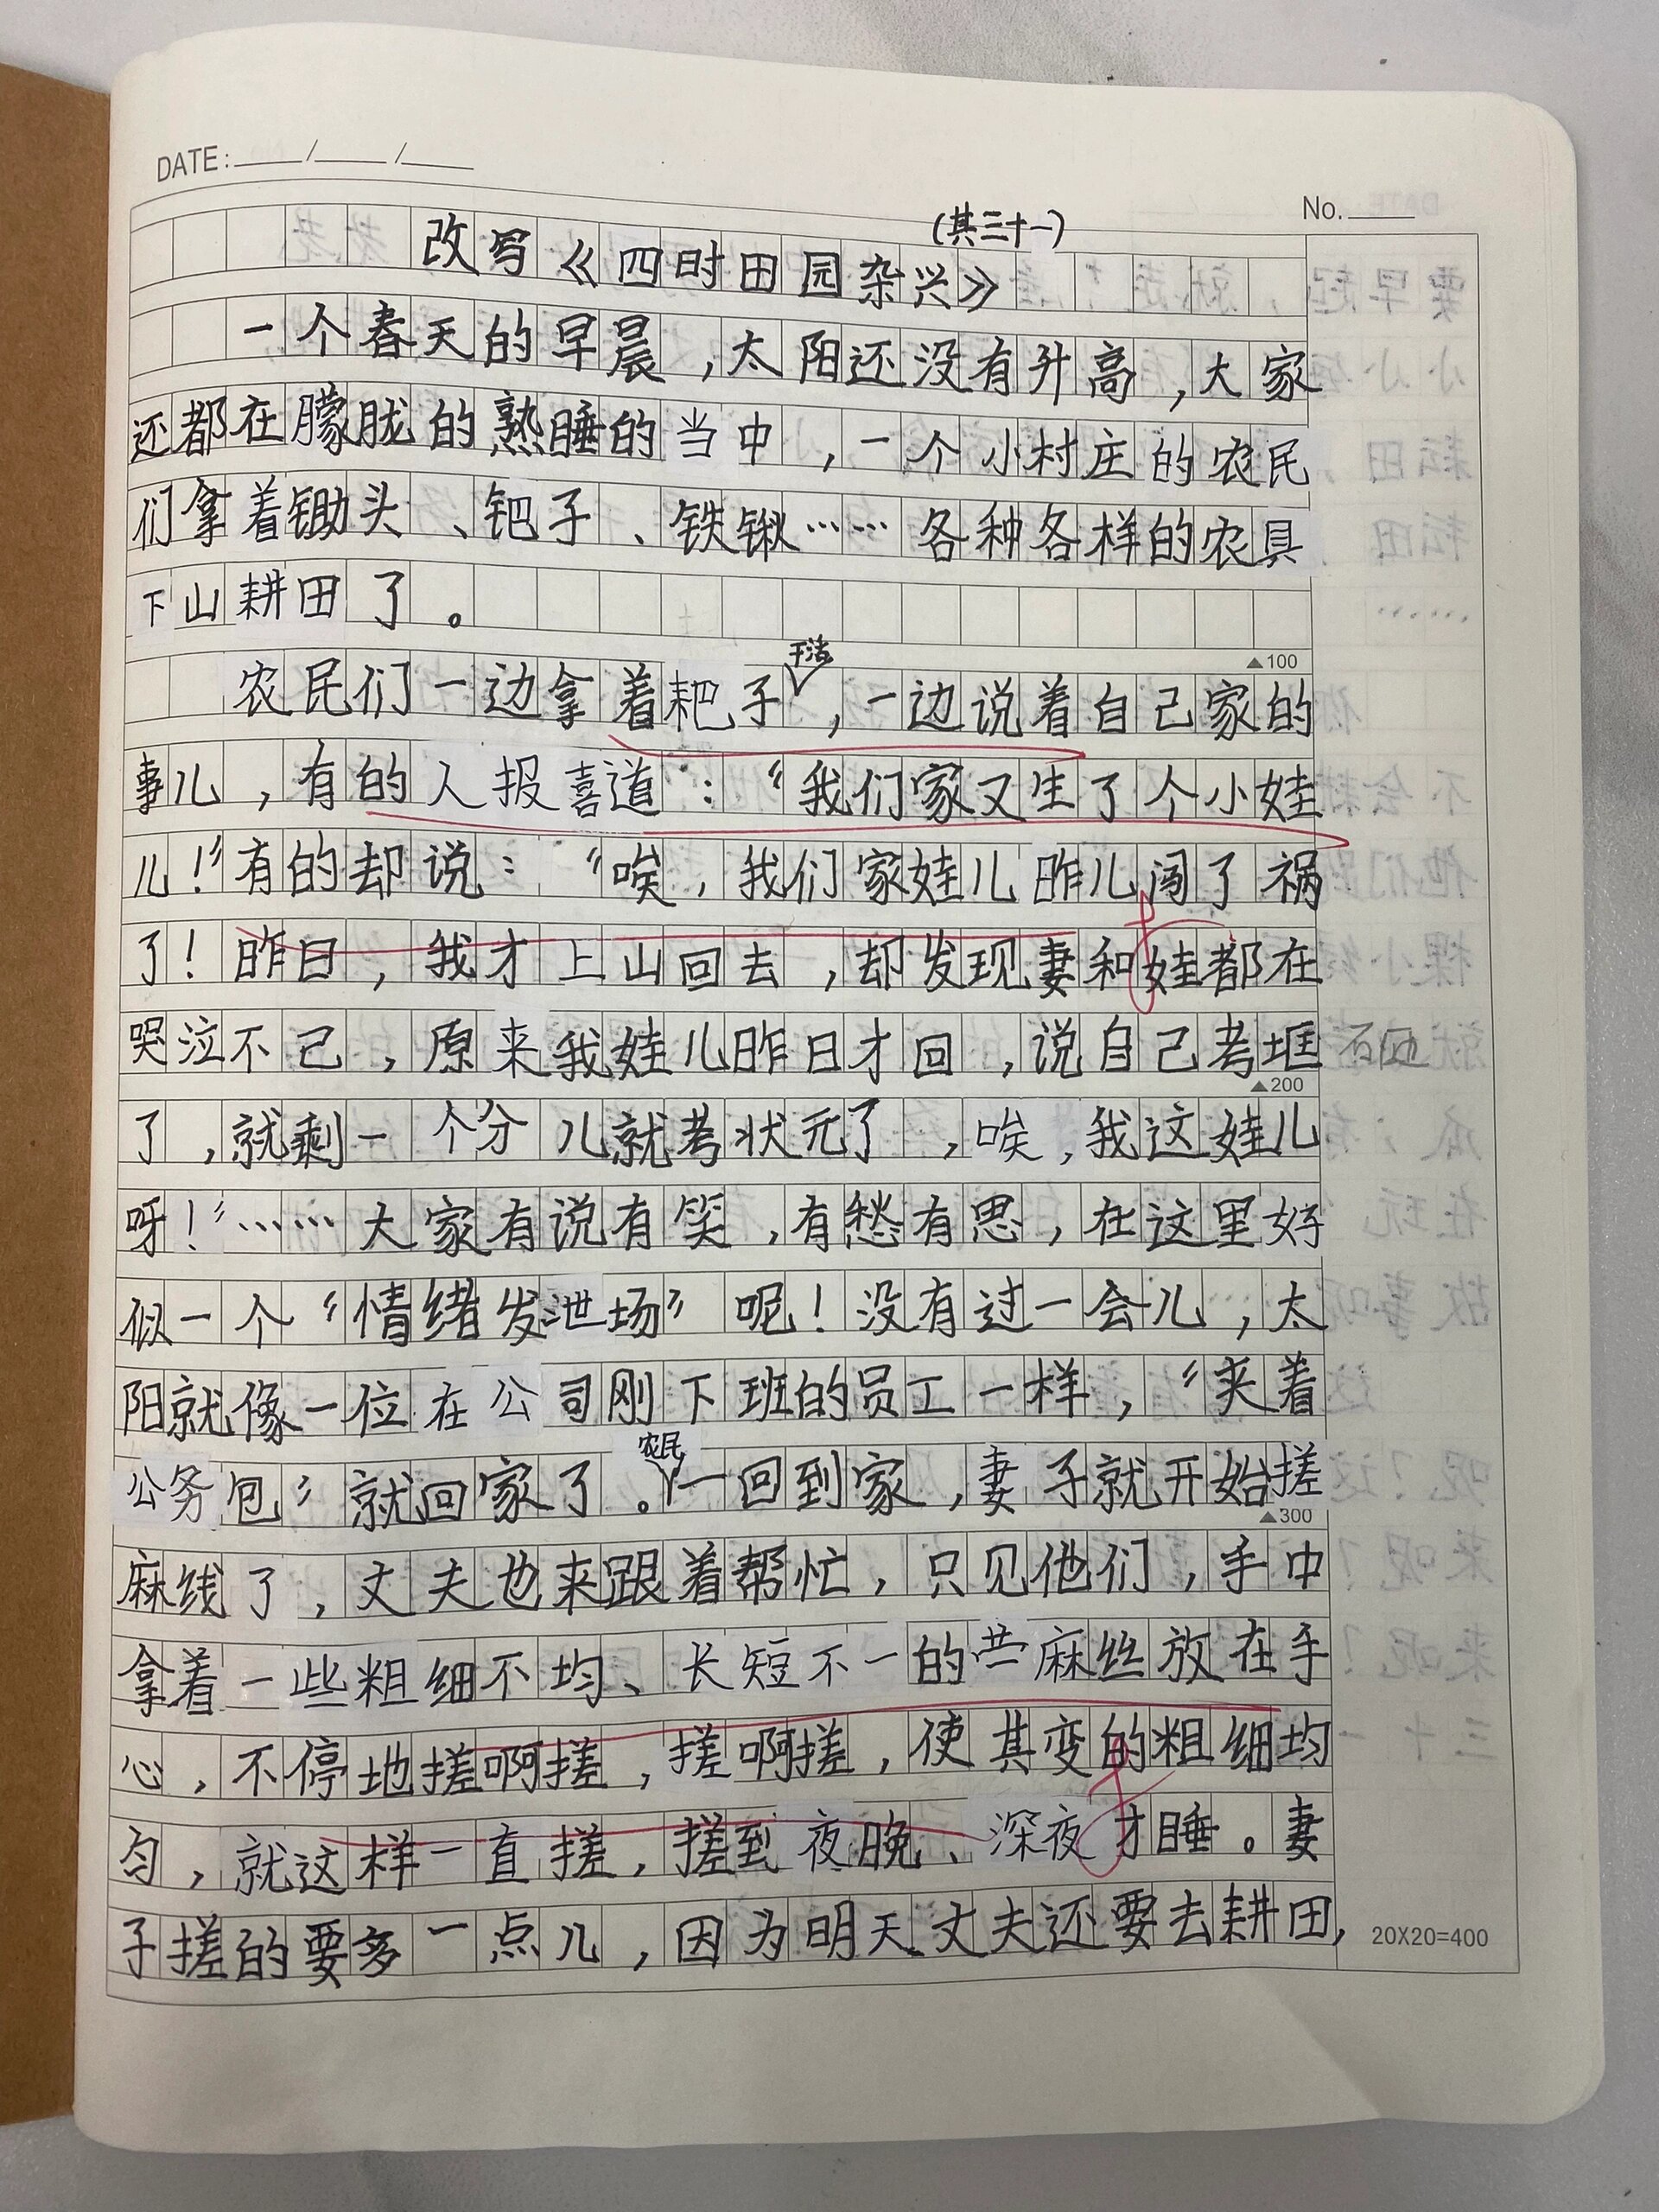 DATE: ___/___/___
No.____
(其三十一)
改写《四时田园杂兴》
一个春天的早晨，太阳还没有升高，大家
还都在朦胧的熟睡的当中，一个小村庄的农民
们拿着锄头、钯子、铁锹……各种各样的农具
下山耕田了。
▲100
干活
农民们一边拿着耙子，一边说着自己家的
事儿，有的人报喜道：“我们家又生了个小娃
儿！”有的却说：“唉，我们家娃儿昨儿闯了祸
了！昨日，我才上山回去，却发现妻和娃都在
哭泣不己，原来我娃儿昨日才回，说自己考
▲200
了，就剩一个分儿就考状元了，唉，我这娃儿
呀！”……大家有说有笑，有愁有思，在这里好
似一个“情绪发泄场”呢！没有过一会儿，太
阳就像一位在公司刚下班的员工一样，“夹着
农民
公务包”就回家了。一回到家，妻子就开始搓
▲300
麻线了，丈夫也来跟着帮忙，只见他们，手中
拿着一些粗细不均、长短不一的些麻丝放在手
心，不停地搓啊搓，搓啊搓，使其变的粗细均
匀，就这样一直搓，搓到夜晚、深夜才睡。妻
子搓的要多一点儿，因为明天丈夫还要去耕田，
20X20=400